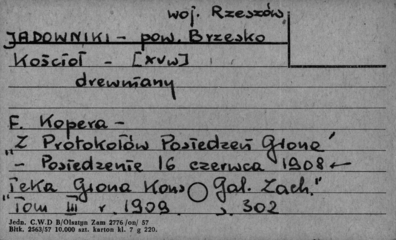 woj. Rzeszów
JADOWNIKI - pow. Brzesko
Kościoł - [XVw]
drewniany
F. Kopera -
"Z Protokołów Posiedzeń Grona"
- Posiedzenie 16 czerwca 1908 -
Teka Grona Kons Gal. Zach."
"Tom III r 1909. s. 302
Jedn. C.W.D B/Olsztyn Zam 2776/on/57
Bltk. 2563/57 10.000 szt. karton kl. 7 g 220.